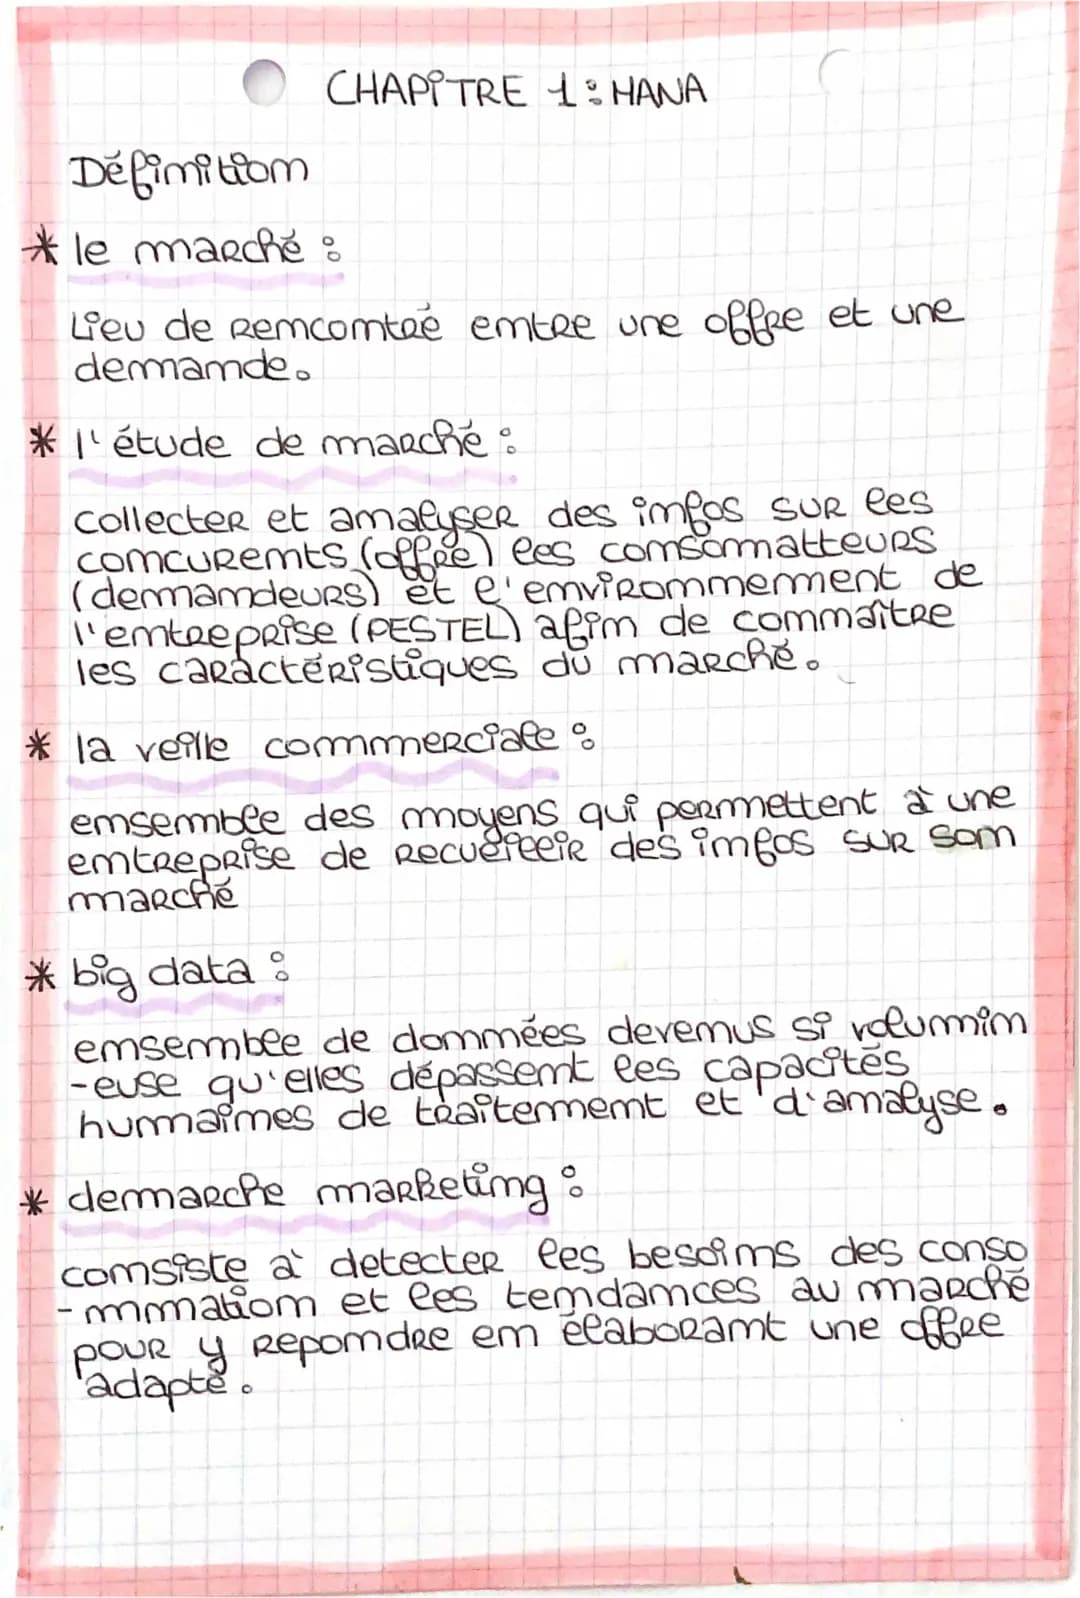 CHAPITRE 1: MANA
Définition
* le marché :
Lieu de rencontre entre une offre et une
demande.
* l'étude de marché :
collecter et analyser des infos sur les
concurents (offre) les consommatteurs
(demandeurs) et l'environnement de
l'entreprise (PESTEL) afin de connaître
les caractéristiques du marché.
* la veille commerciale :
ensemble des moyens qui permettent à une
entreprise de recueillir des infos sur son
marché
* big data :
ensemble de données devenus si volumin
-euse qu'elles dépassent les capacités
humaines de traîtement et d'analyse.
* demarche marketing :
consiste à detecter les besoins des conso
-mmation et les tendances au marché
pour y repondre en élaborant une offre
adapté.